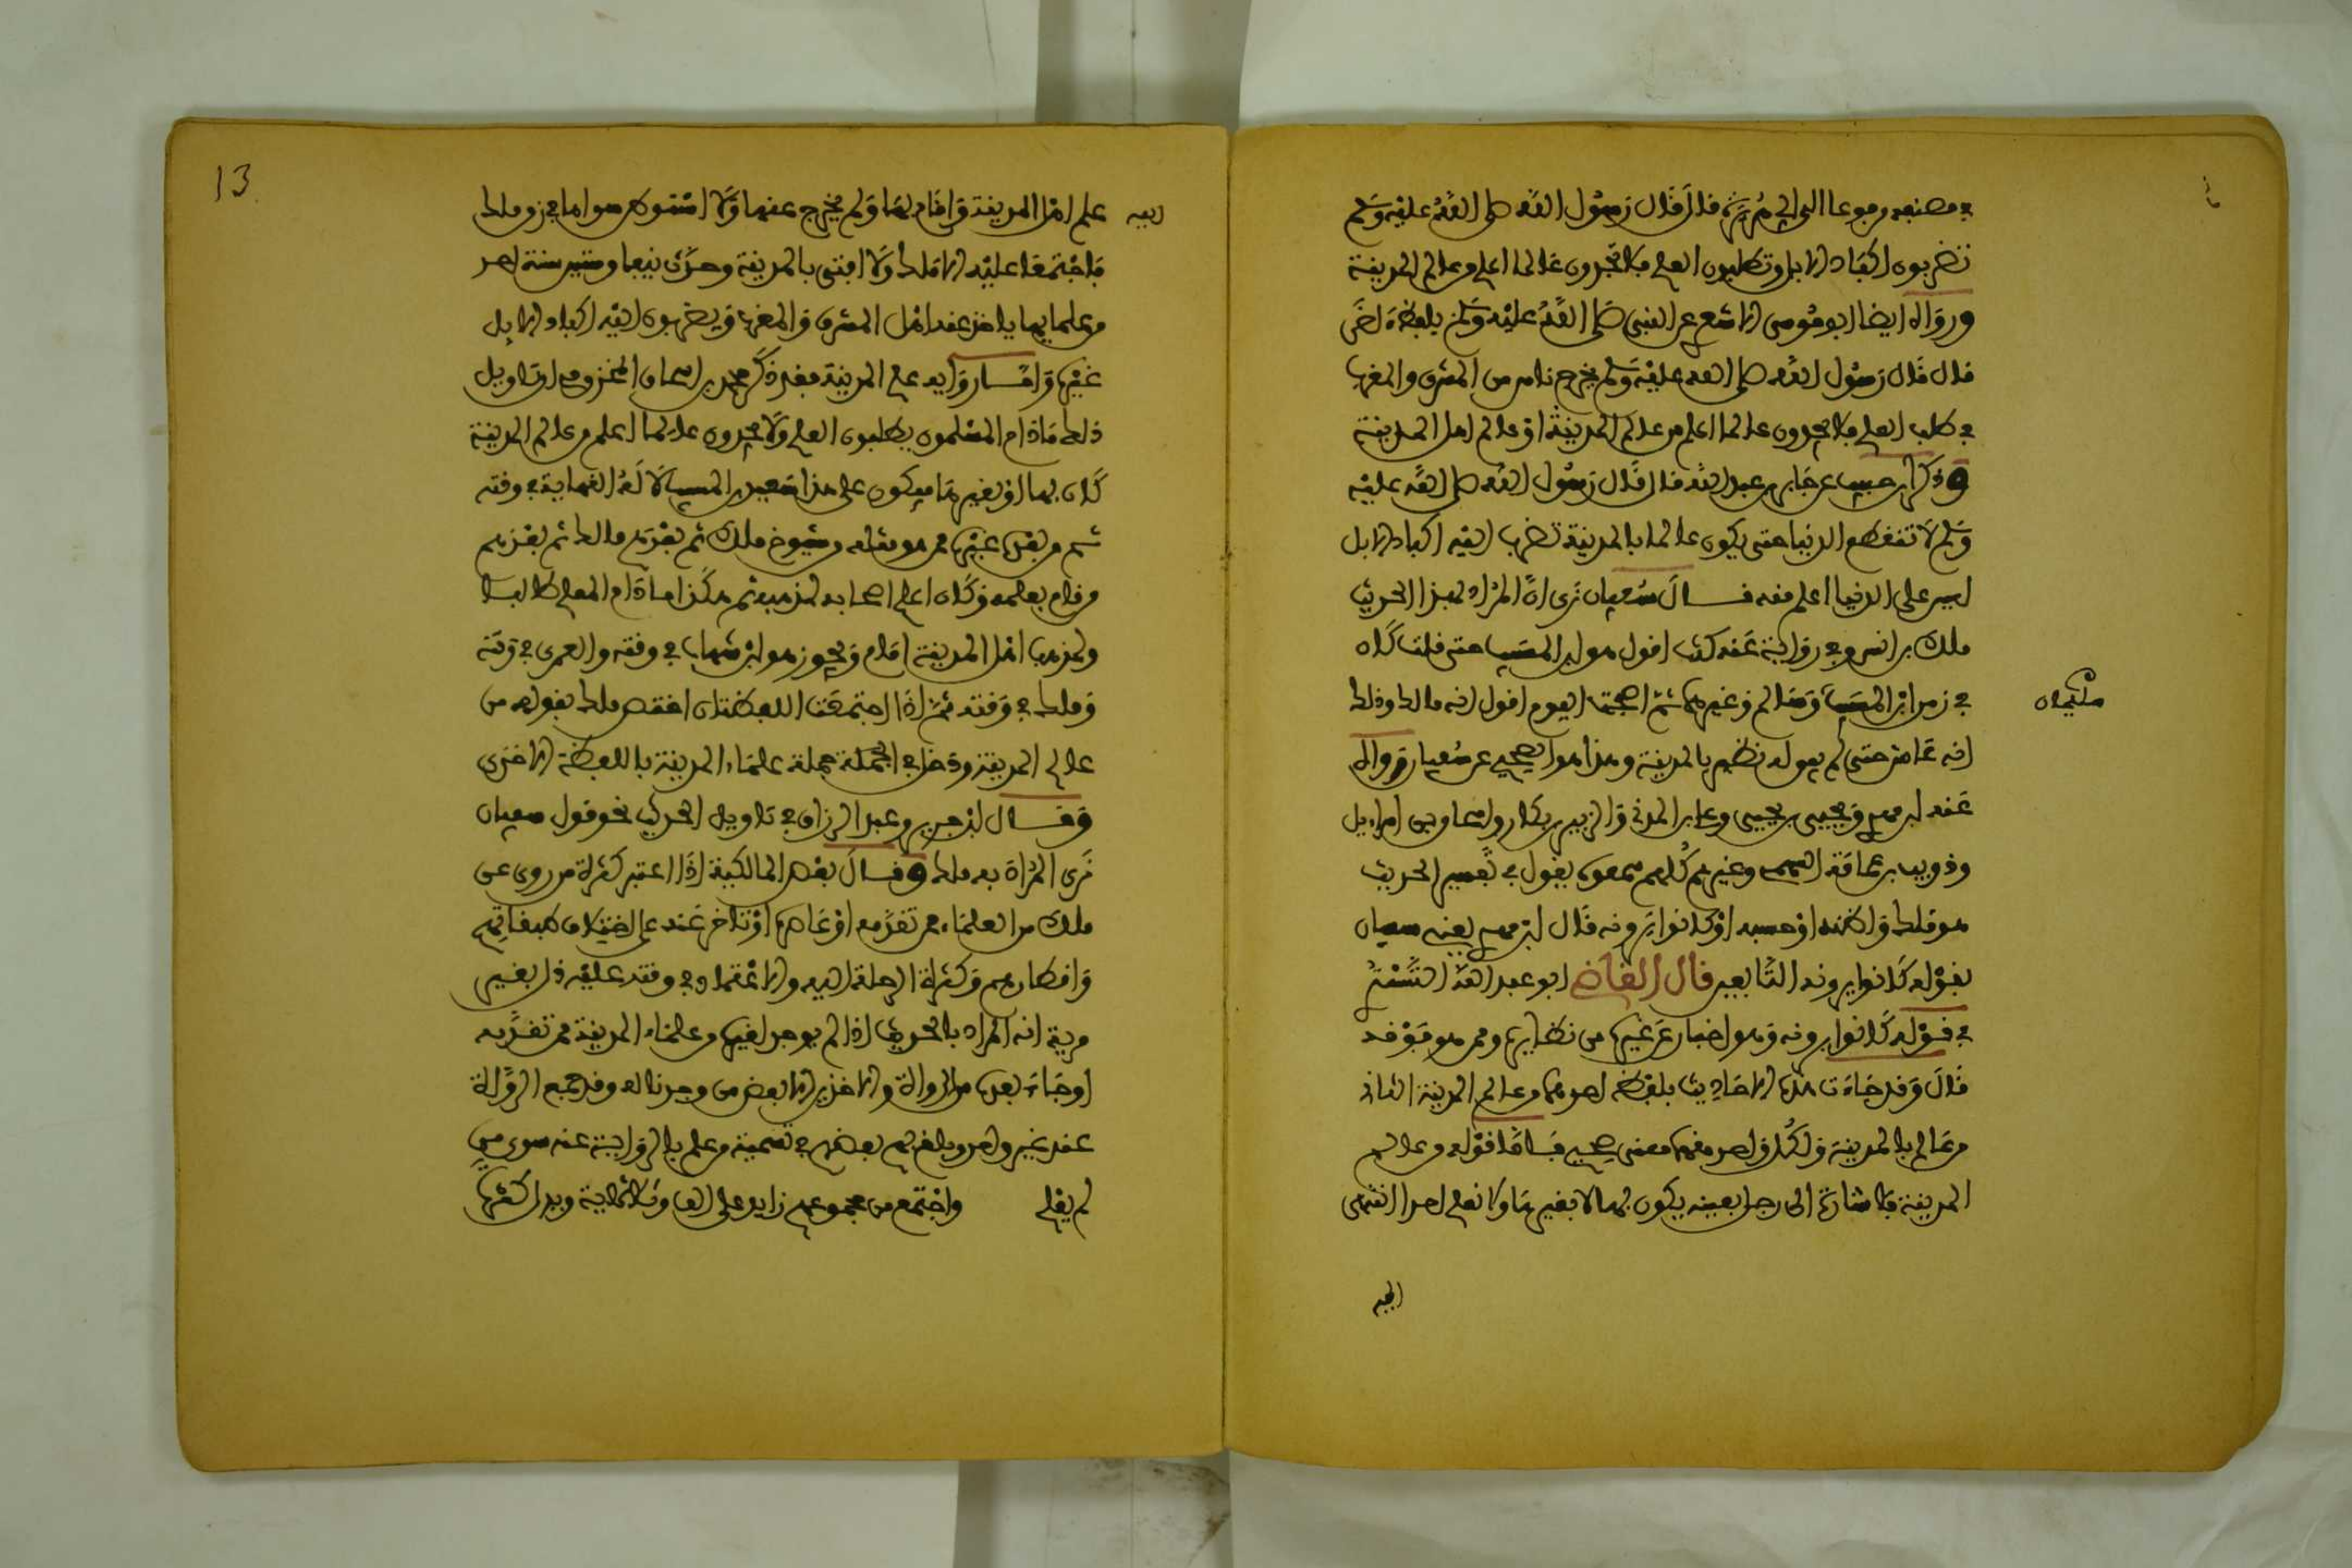 في مصنفه مرفوعا الى ابي هريرة قال قال رسول الله صلى الله عليه وسلم
تضربون اكباد الابل وتطلبون العلم فلا تجدون عالما اعلم من عالم المدينة
ورواه ايضا ابو موسى الاشعري عن النبي صلى الله عليه وسلم بلفظة اخرى
قال قال رسول الله صلى الله عليه وسلم يخرج ناس من المشرق والمغرب
في طلب العلم فلا يجدون عالما اعلم من عالم المدينة او عالم اهل المدينة
وذكر ابن حبيب عن جابر بن عبد الله قال قال رسول الله صلى الله عليه
وسلم لا تنقطع الدنيا حتى يكون عالما بالمدينة تضرب اليه اكباد الابل
ليس على الدنيا اعلم منه قال سفيان نرى ان المراد بهذا الحديث
ملك بن انس وفي رواية عنه كنت اقول هو ابن المسيب حتى قلت كان
في زمن ابن المسيب وسالم وغيرهما ثم اصبحت اليوم اقول انه مالك وذلك
سليمان
انه عاش حتى لم يبق له نظير بالمدينة وهذا هو الصحيح عن سفيان رواه
عنه ابن مهدي ويحيى بن يحيى وعلي بن المديني والزبير بن بكار واسحاق بن ابي اسراءيل
وذويب بن عمامة السهمي وغيرهم كلهم سمعه يقول في تفسير الحديث
هو ملك او اظنه او احسبه او كانوا يرونه قال ابن مهدي يعني سفيان
بقوله كانوا يرونه التابعين قال القاضي ابو عبد الله التستري
في قوله كانوا يرونه وهو اخبار عن غيره من نظرايه او ممن هو فوقه
قال وقد جاءت هذه الاحاديث بلفظين احدهما من عالم المدينة الثاني
من عالم بالمدينة ولكل واحد منهما معنى صحيح فاما قوله من عالم
المدينة فاشارة الى رجل بعينه يكون بها لا بغيرها ولا نعلم احدا انتهى
اليه
13
اليه علم اهل المدينة واقام بها ولم يخرج عنها ولا استوطن سواها في زمن ملك
فاجتمعا عليه الا ملك ولا افتى بالمدينة وحدث نيفا وستين سنة احد
من علمايها ياخذ عنه اهل المشرق والمغرب ويضربون اليه اكباد الابل
غيره واما رواية عالم المدينة فقد ذكر محمد بن اسحاق المخزومي ان تاويل
ذلك ما دام المسلمون يطلبون العلم ولا يجدون عالما اعلم من عالم المدينة
كان بها او بغيرها فيكون على هذا سعيد بن المسيب لانه النهاية في وقته
ثم من بعده غيره ممن هو مثله من شيوخ ملك ثم بعدهم مالك ثم بعده من
قام بعلمه وكان اعلم اصحابه بمذهبه ثم هكذا ما دام للعلم طالب
ولمذهب اهل المدينة امام ويجوز هو ابن شهاب في وقته والعمري في وقته
وملك في وقته ثم اذا اجتمعت اللفظتان اختص ملك بقوله من
عالم المدينة ودخل في الجملة جملة علماء المدينة باللفظة الاخرى
وقال ابن جريج وعبد الرزاق في تاويل الحديث نحو قول سفيان
نرى المراد به ملك وقال بعض المالكية اذا اعتبر كثرة من روى عن
ملك من العلماء ممن تقدمه او عاصره او تاخر عنه على اختلاف طبقاتهم
واقطارهم وكثرة الرحلة اليه والاعتماد في وقته عليه دل بغير
مرية انه المراد بالحديث اذ لم يوجد لغيره من علماء المدينة ممن تقدمه
او جاء بعده من الرواة والاخذين الا بعض من وجدنا له وقد جمع الرواة
عنه غير واحد وبلغ بهم بعضهم في تسمية من علم بالرواية عنه سوى من
لم يعلم واجتمع من مجموعهم زايد على الف وثلاثماية ويدل كثرة